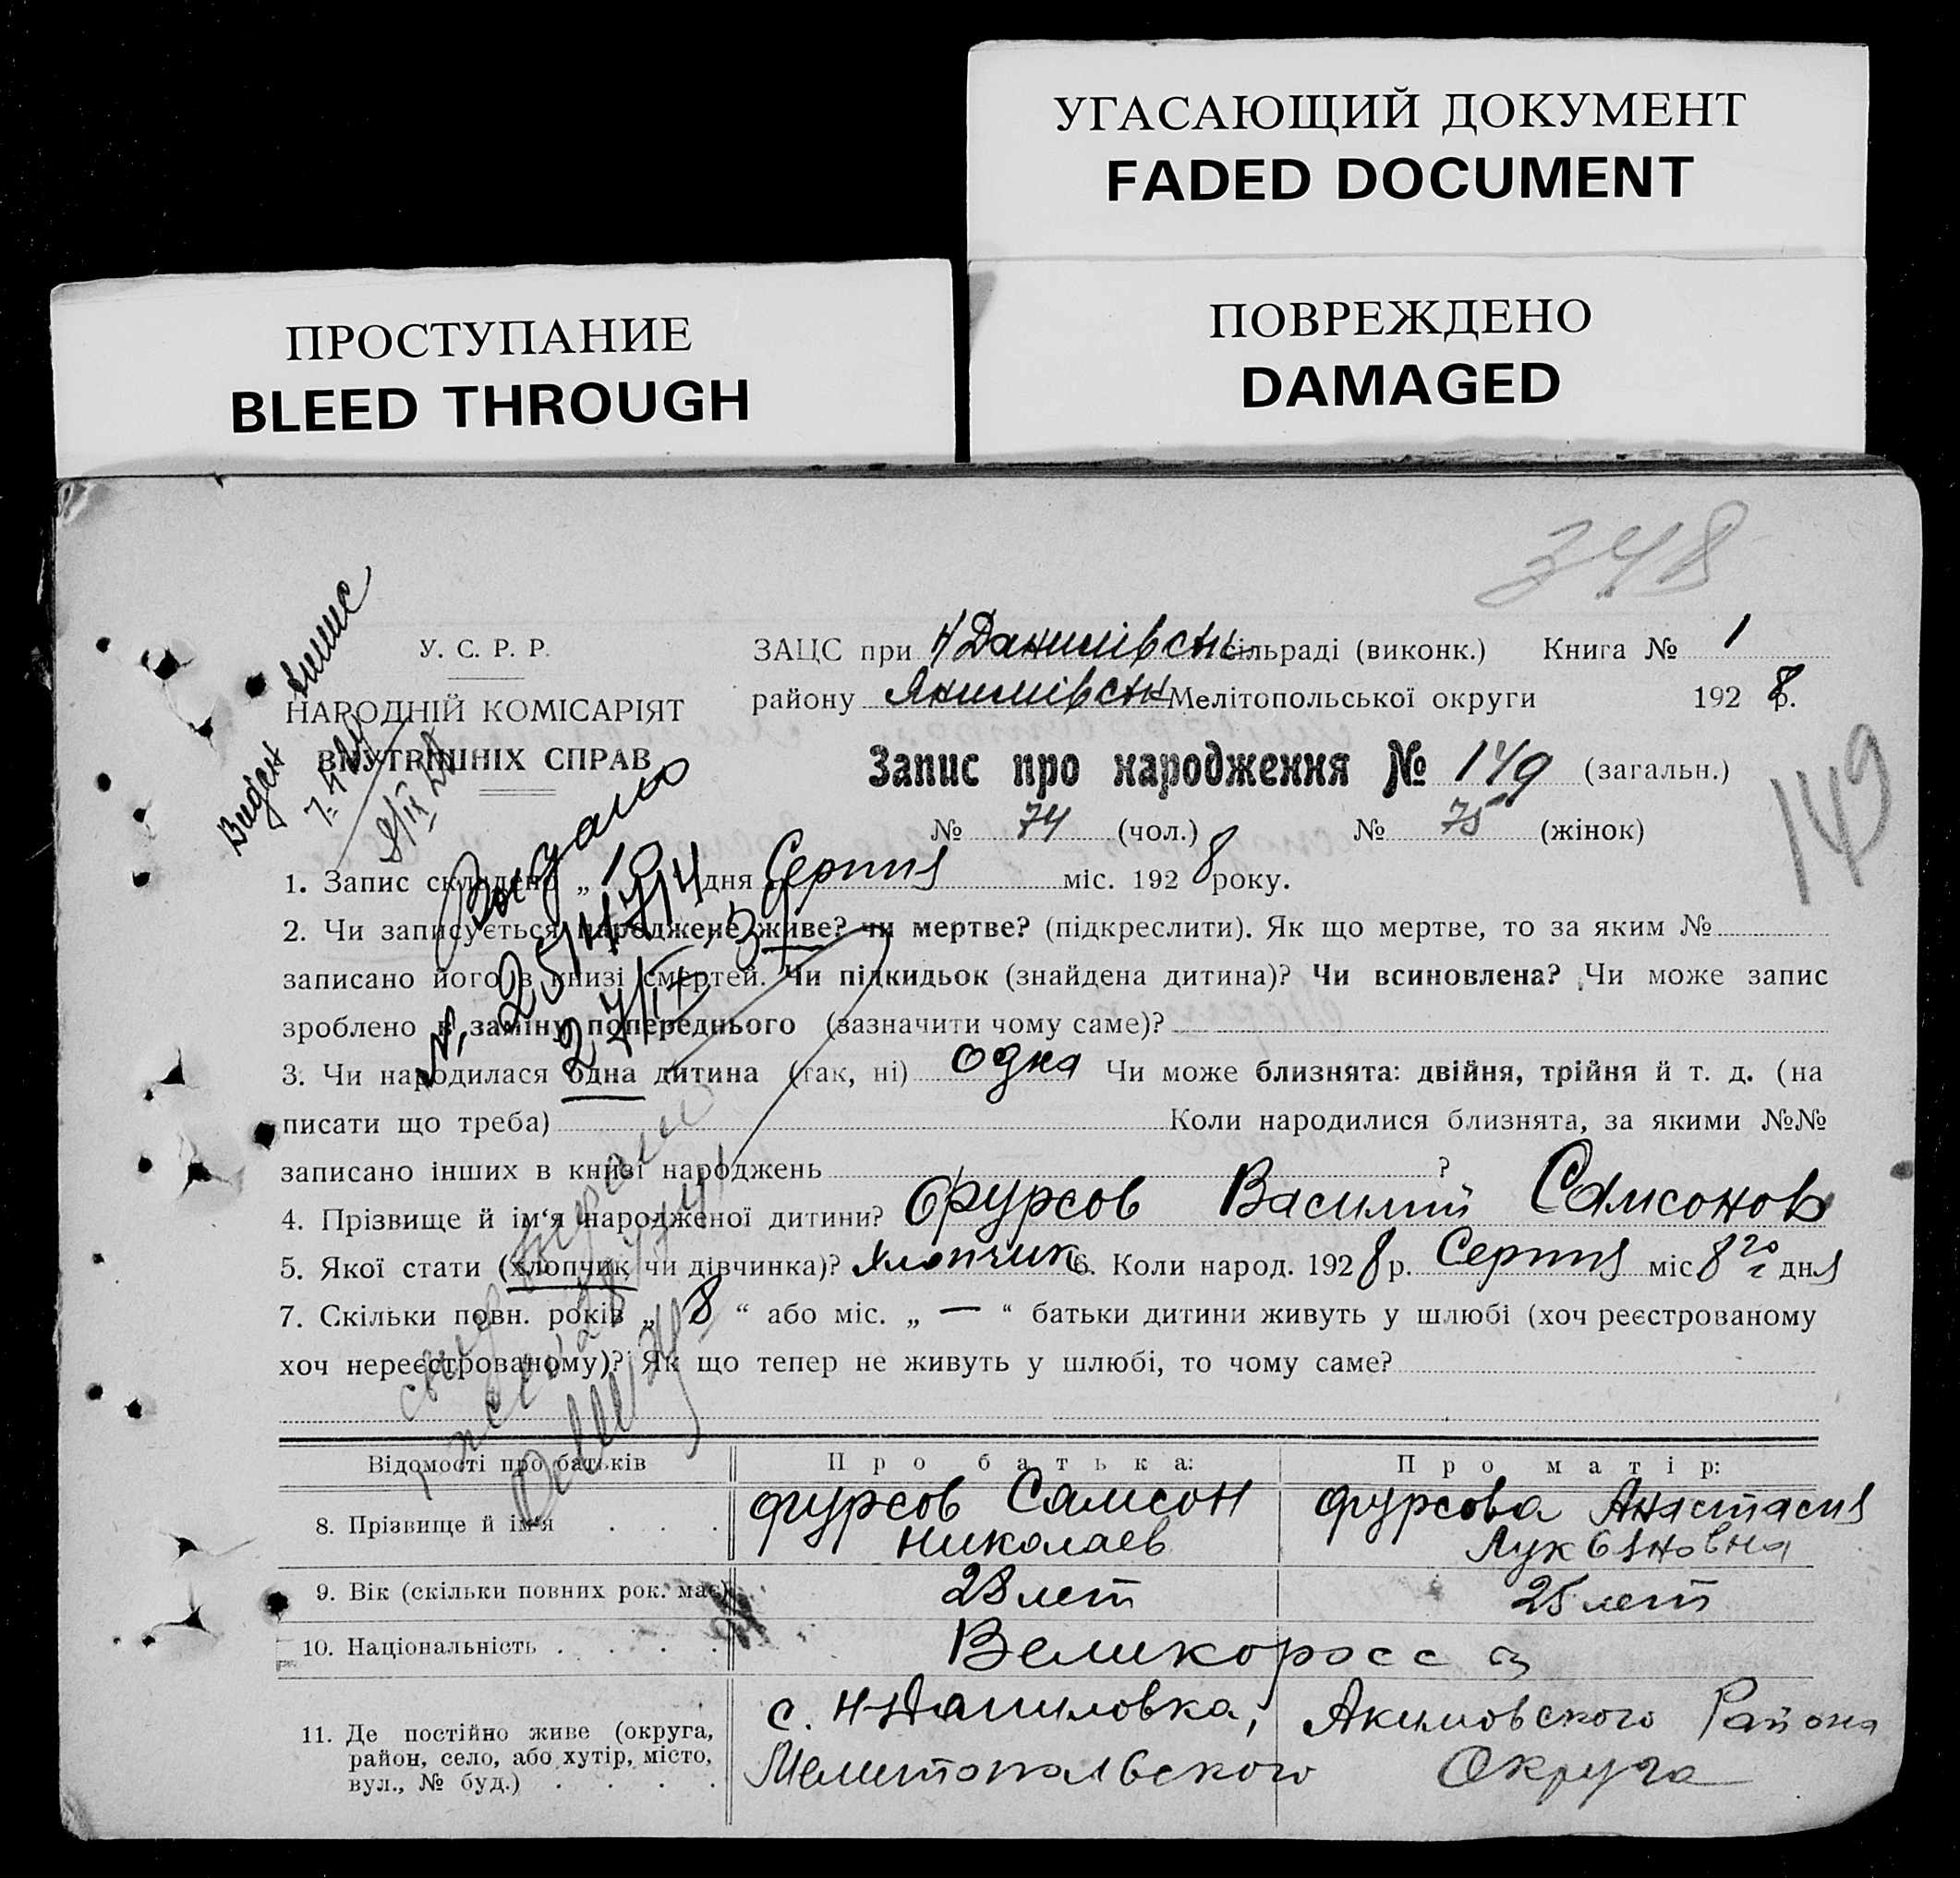 УГАСАЮЩИЙ ДОКУМЕНТ
FADED DOCUMENT
ПРОСТУПАНИЕ
BLEED THROUGH
ПОВРЕЖДЕНО
DAMAGED
348
У. С. Р. Р.
НАРОДНІЙ КОМІСАРІЯТ
ВНУТРІШНІХ СПРАВ
ЗАЦС при Н Данилівськ сільраді (виконк.) Книга № 1
району Якимівськ Мелітопольської округи 192 8 р.
Запис про народження № 149 (загальн.)
149
№ 74 (чол.) № 75 (жінок)
1. Запис складено „ 10 дня Серпня міс. 192 8 року.
2. Чи записується народжене живе? чи мертве? (підкреслити). Як що мертве, то за яким №
записано його в книзі смертей. Чи підкидьок (знайдена дитина)? Чи всиновлена? Чи може запис
зроблено в заміну попереднього (зазначити чому саме)?
3. Чи народилася одна дитина (так, ні) одна Чи може близнята: двійня, трійня й т. д. (на
писати що треба) Коли народилися близнята, за якими №№
записано інших в книзі народжень ?
4. Прізвище й ім'я народженої дитини? Фурсов Василий Самсонов
5. Якої стати (хлопчик чи дівчинка)? Хлопчик 6. Коли народ. 192 8 р. Серпня міс 8 дня
7. Скільки повн. років „ 8 “ або міс. „ — “ батьки дитини живуть у шлюбі (хоч реєстрованому
хоч нереєстрованому)? Як що тепер не живуть у шлюбі, то чому саме?
Відомості про батьків Про батька: Про матір:
8. Прізвище й ім'я . . . Фурсов Самсон Николаев Фурсова Анастасия Лукьяновна
9. Вік (скільки повних рок. має) 28 лет 25 лет
10. Національність . . . . Великоросс
11. Де постійно живе (округа, с. Н-Даниловка, Акимовского Района
район, село, або хутір, місто,
вул., № буд.) . . . . Мелитопольского Округа